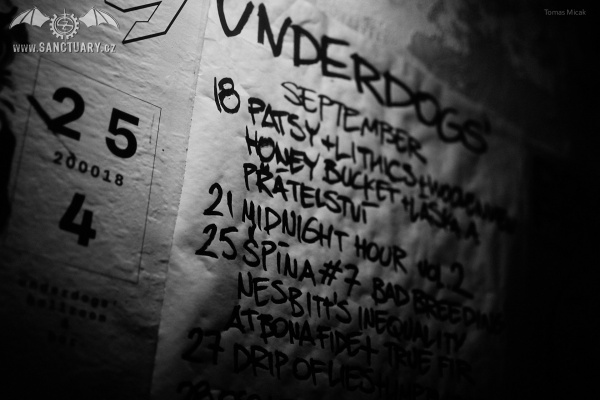 www.SANCTUARY.cz
Tomas Micak
UNDERDOGS'
SEPTEMBER
18 PATSY + LITHICS +
HONEY BUCKET + LÁSKA A
PŘÁTELSTVÍ
21 MIDNIGHT HOUR vol. 2
25 ŠPÍNA #7 BAD BREEDING
NESBITT'S INEQUALITY
AT BONA FIDE + TRUE FIR
27 DRIP OF LIES +
25
200018
4
underdogs'